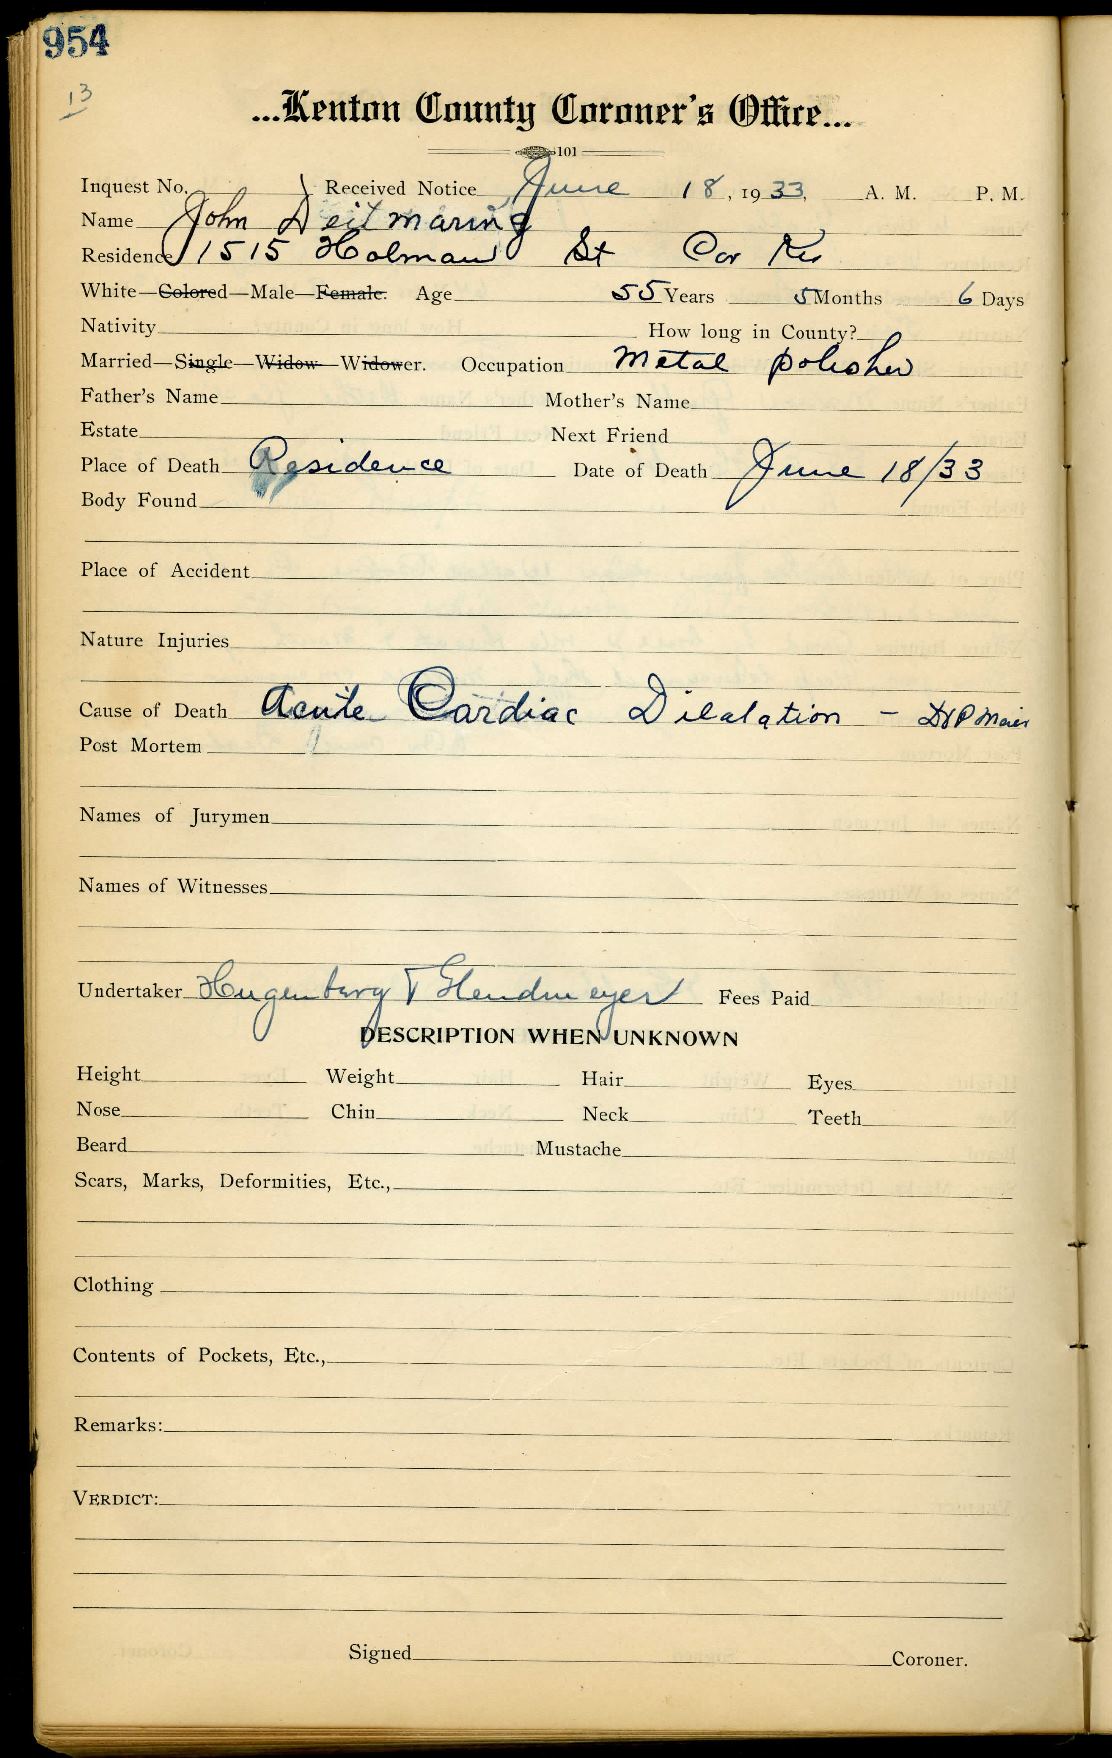 954
13
...Kenton County Coroner's Office...
101
Inquest No. Received Notice June 18, 1933, A. M. P. M.
Name John Deitmaring
Residence 1515 Holman St Cov Ky
White—Colored—Male—Female. Age 55 Years 5 Months 6 Days
Nativity How long in County?
Married—Single—Widow—Widower. Occupation Metal polisher
Father's Name Mother's Name
Estate Next Friend
Place of Death Residence Date of Death June 18/33
Body Found
Place of Accident
Nature Injuries
Cause of Death Acute Cardiac Dilalation – Dr P Maier
Post Mortem
Names of Jurymen
Names of Witnesses
Undertaker Hugenberg & Glendmeyer Fees Paid
DESCRIPTION WHEN UNKNOWN
Height Weight Hair Eyes
Nose Chin Neck Teeth
Beard Mustache
Scars, Marks, Deformities, Etc.,
Clothing
Contents of Pockets, Etc.,
Remarks:
VERDICT:
Signed Coroner.